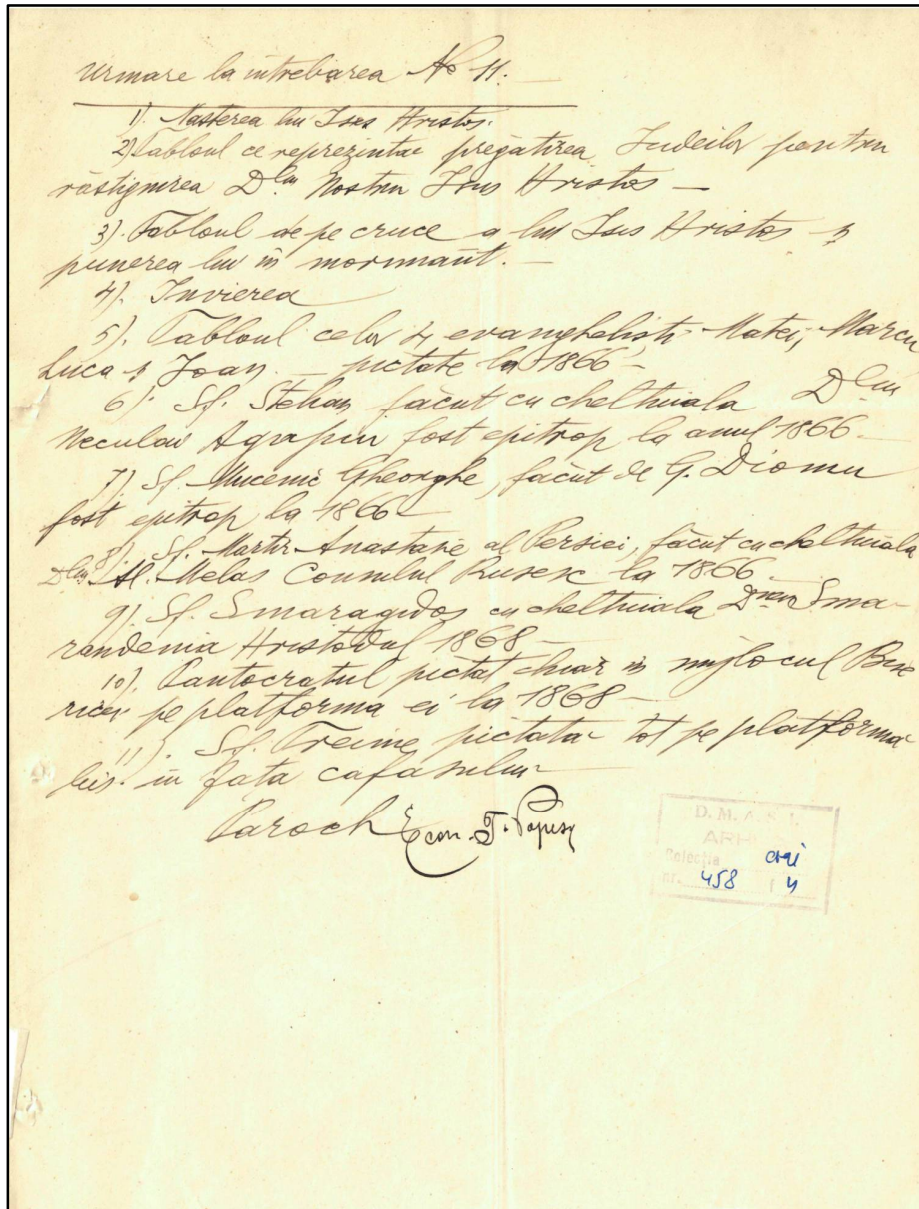 Urmare la întrebarea No 11.
1). Nasterea lui Isus Hristos.
2) Tabloul ce reprezintă pregătirea Judeilor pentru
răstignirea Dlui Nostru Isus Hristos —
3). Tabloul de pe cruce a lui Isus Hristos și
punerea lui în mormânt. —
4). Invierea
5). Tabloul celor 4 evangheliști Matei, Marcu
Luca și Ioan — pictate la 1866 —
6). Sf. Stelian făcut cu cheltuiala Dlui
Neculau Agapiu fost epitrop la anul 1866 —
7) Sf. Mucenic Gheorghe, făcut de G. Diomu
fost epitrop la 1866 —
8). Sf. Martir Anastasie al Persiei, făcut cu cheltuiala
Dlui Al. Melas Consulul Rusesc la 1866
9). Sf. Smaragdos cu cheltuiala Dnei Sma-
randenia Hristodul 1868 —
10). Pantocratul pictat chiar in mijlocul Bise
ricei pe platforma ei la 1868 —
11). Sf. Treime pictată tot pe platforma
bis. in fața cafasului
Paroch Econ. T. Popescu
D. M. A. S. I.
ARHIVA
Colecția
nr. 458 / 4